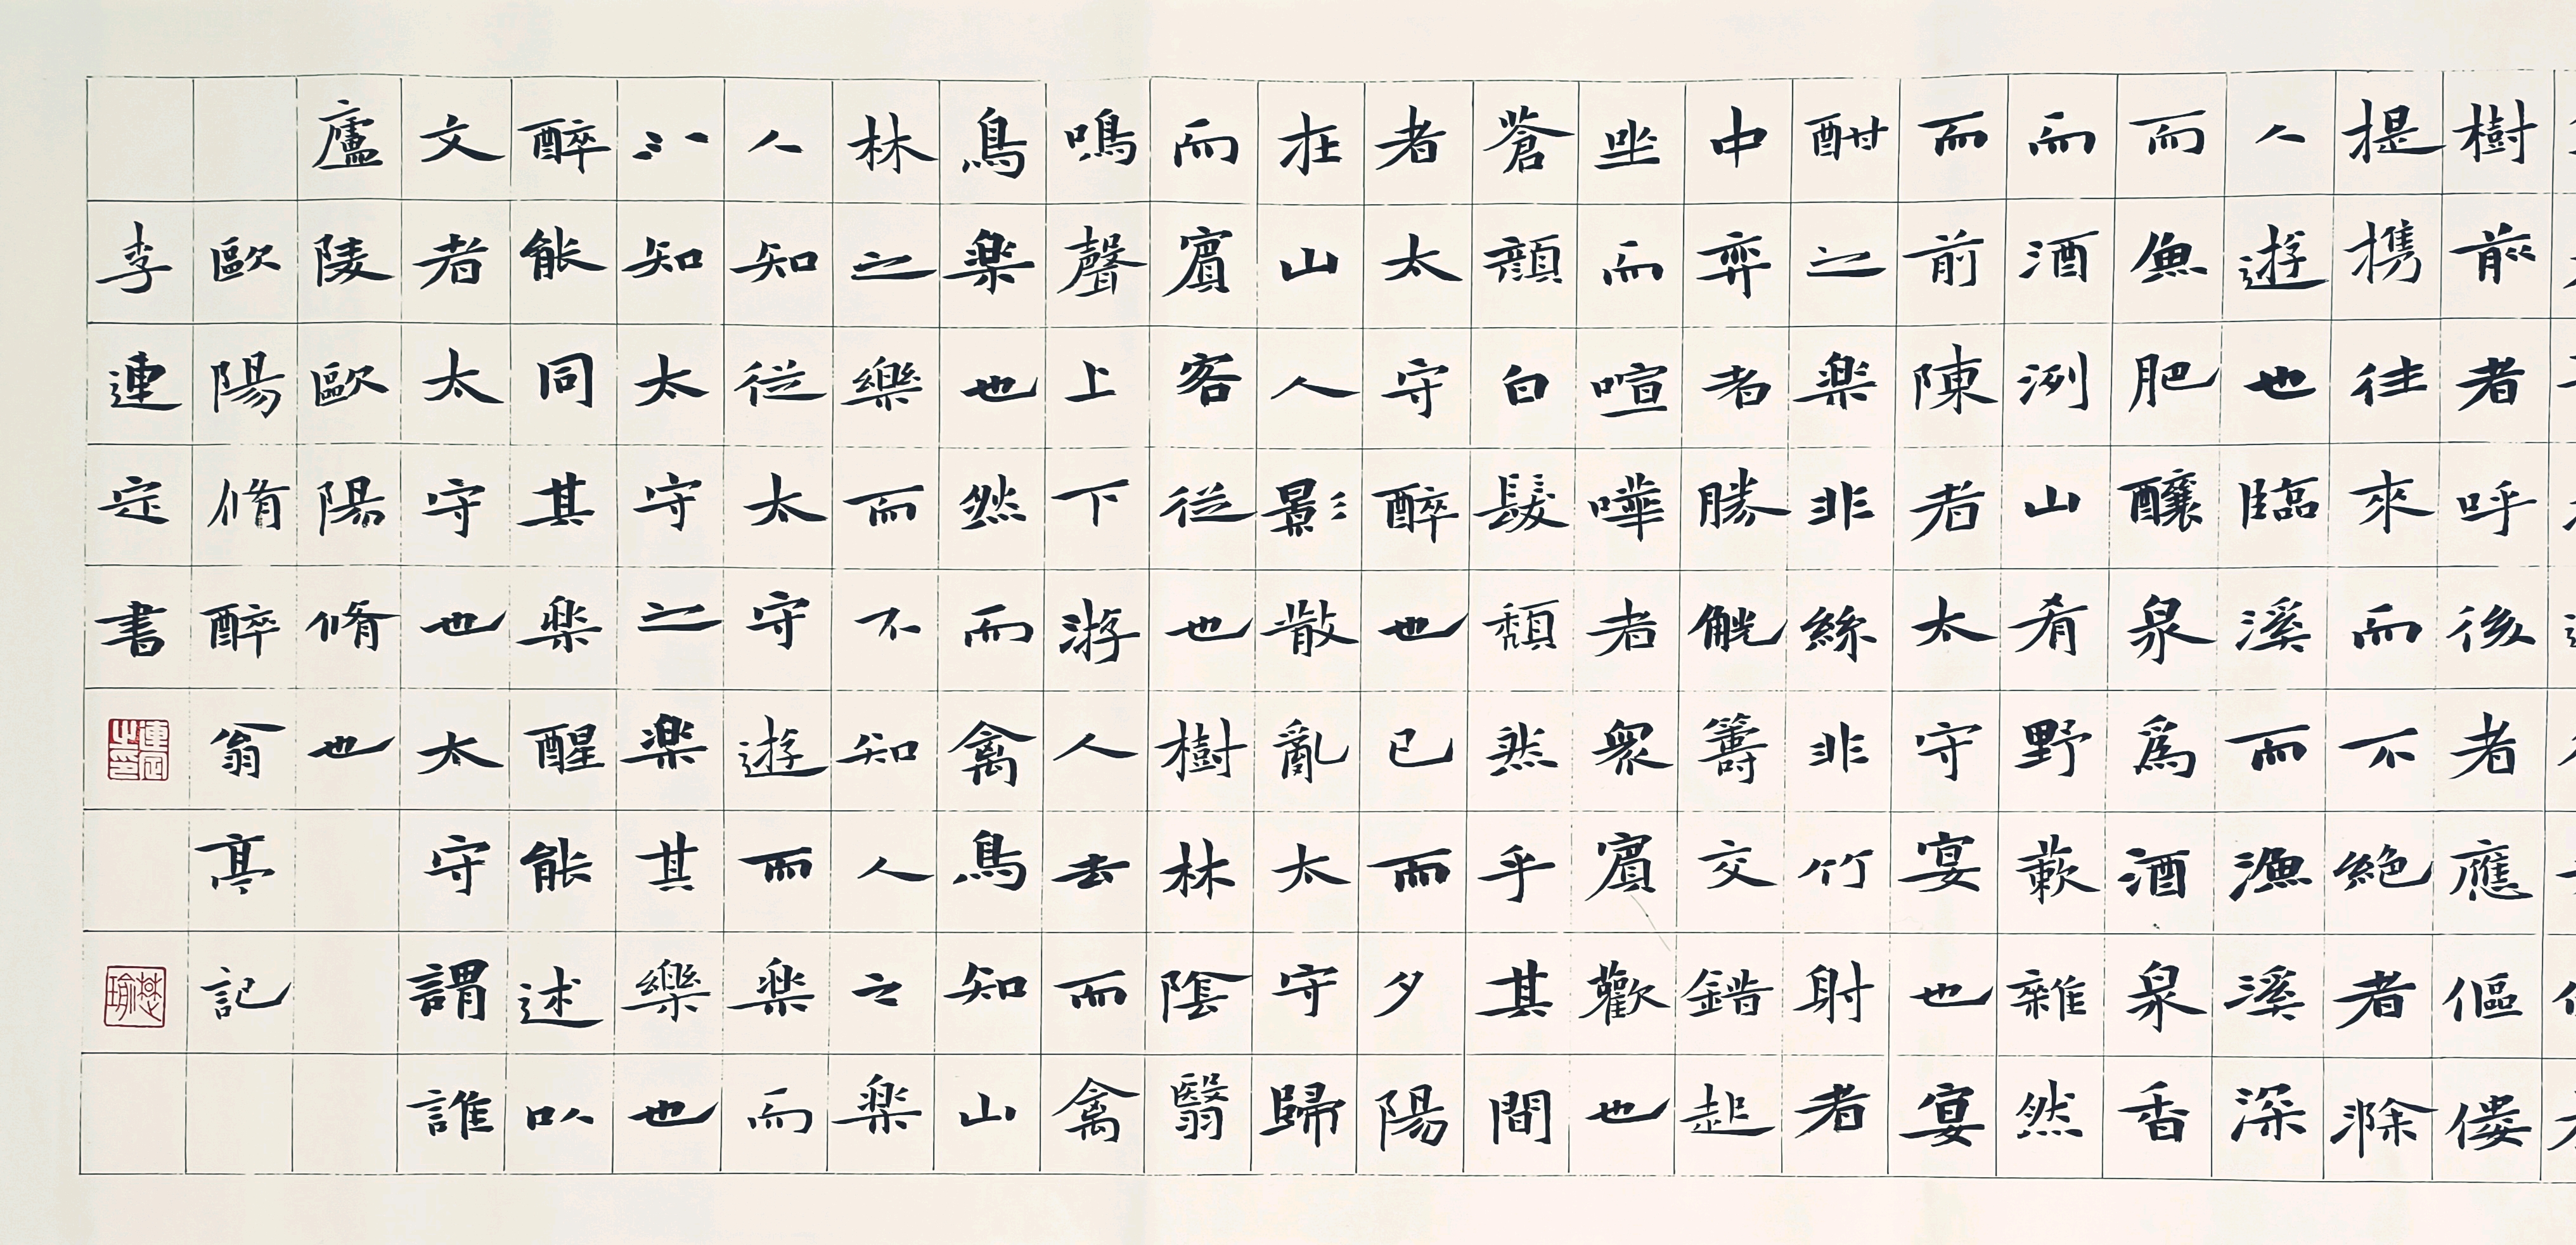 樹前者呼後者應傴僂
提携往來而不絕者滁
人遊也臨溪而漁溪深
而魚肥釀泉為酒泉香
而酒洌山肴野蔌雜然
而前陳者太守宴也宴
酣之樂非絲非竹射者
中弈者勝觥籌交錯起
坐而喧嘩者眾賓歡也
蒼顏白髮頹然乎其間
者太守醉也已而夕陽
在山人影散亂太守歸
而賓客從也樹林陰翳
鳴聲上下游人去而禽
鳥樂也然而禽鳥知山
林之樂而不知人之樂
人知從太守遊而樂而
知太守之樂其樂也
醉能同其樂醒能述以
文者太守也太守謂誰
廬陵歐陽脩也
歐陽脩醉翁亭記
李連定書
連定之印